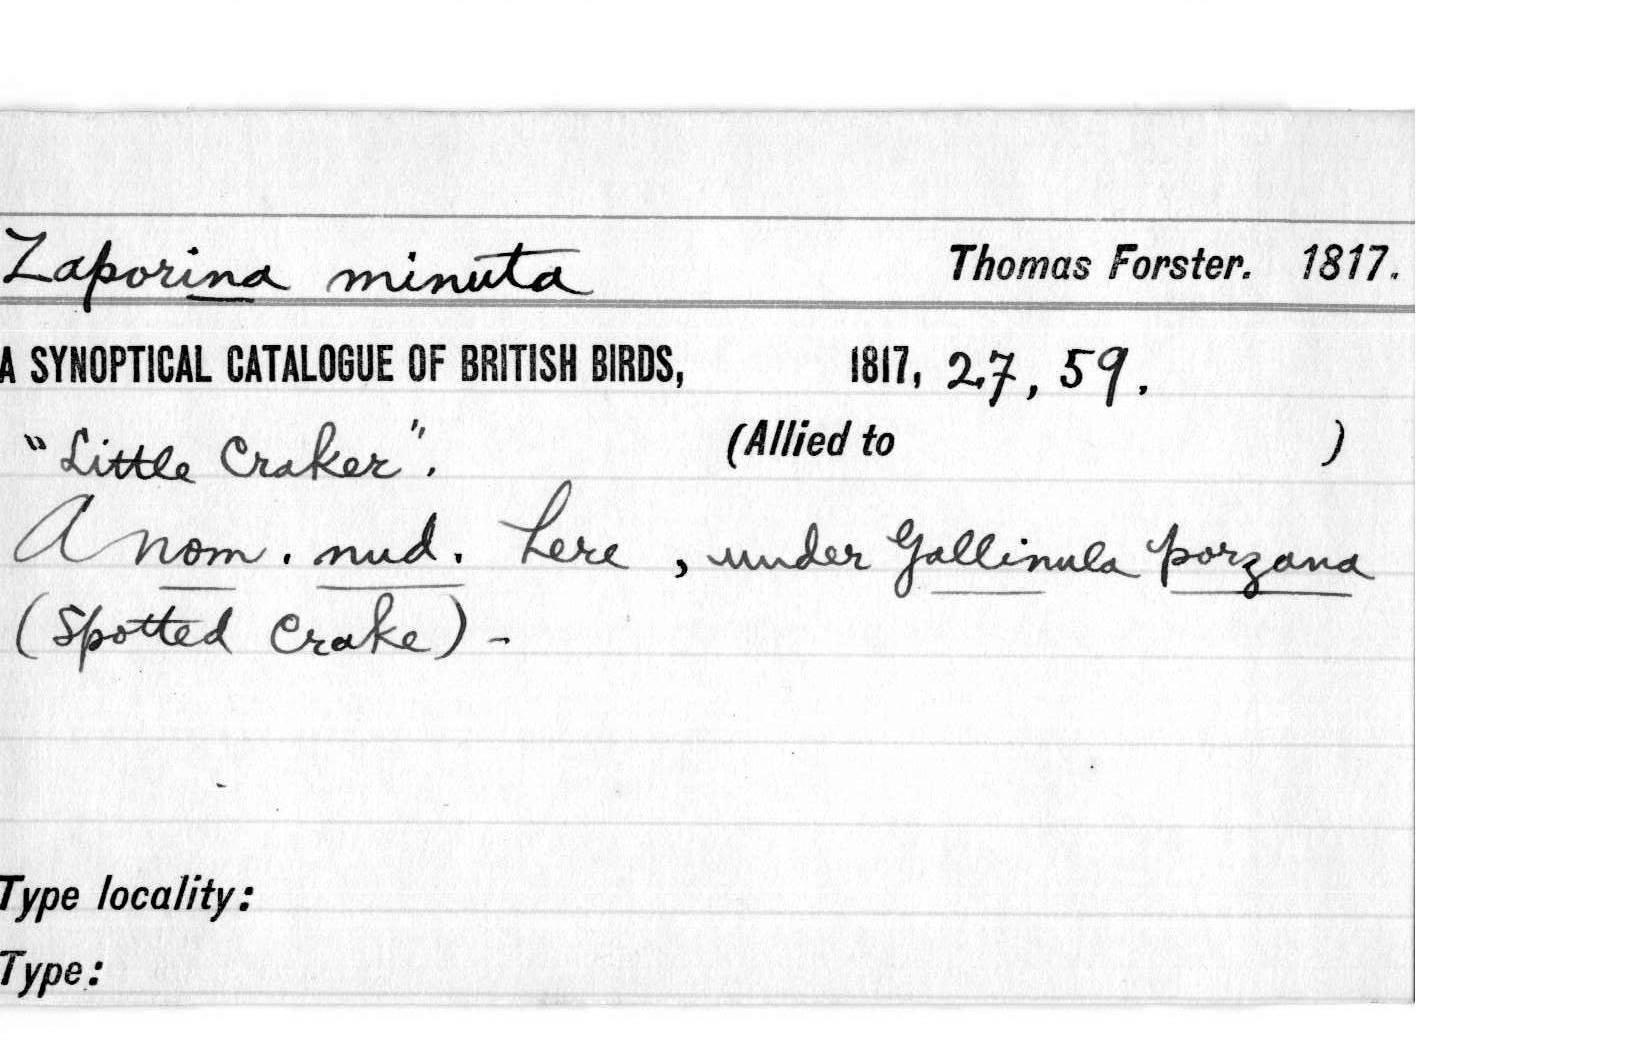 Zaporina minuta Thomas Forster. 1817.
A SYNOPTICAL CATALOGUE OF BRITISH BIRDS, 1817, 27, 59.
"Little Craker". (Allied to )
A nom. nud. here, under Gallinula porzana
(Spotted Crake) -
Type locality:
Type: